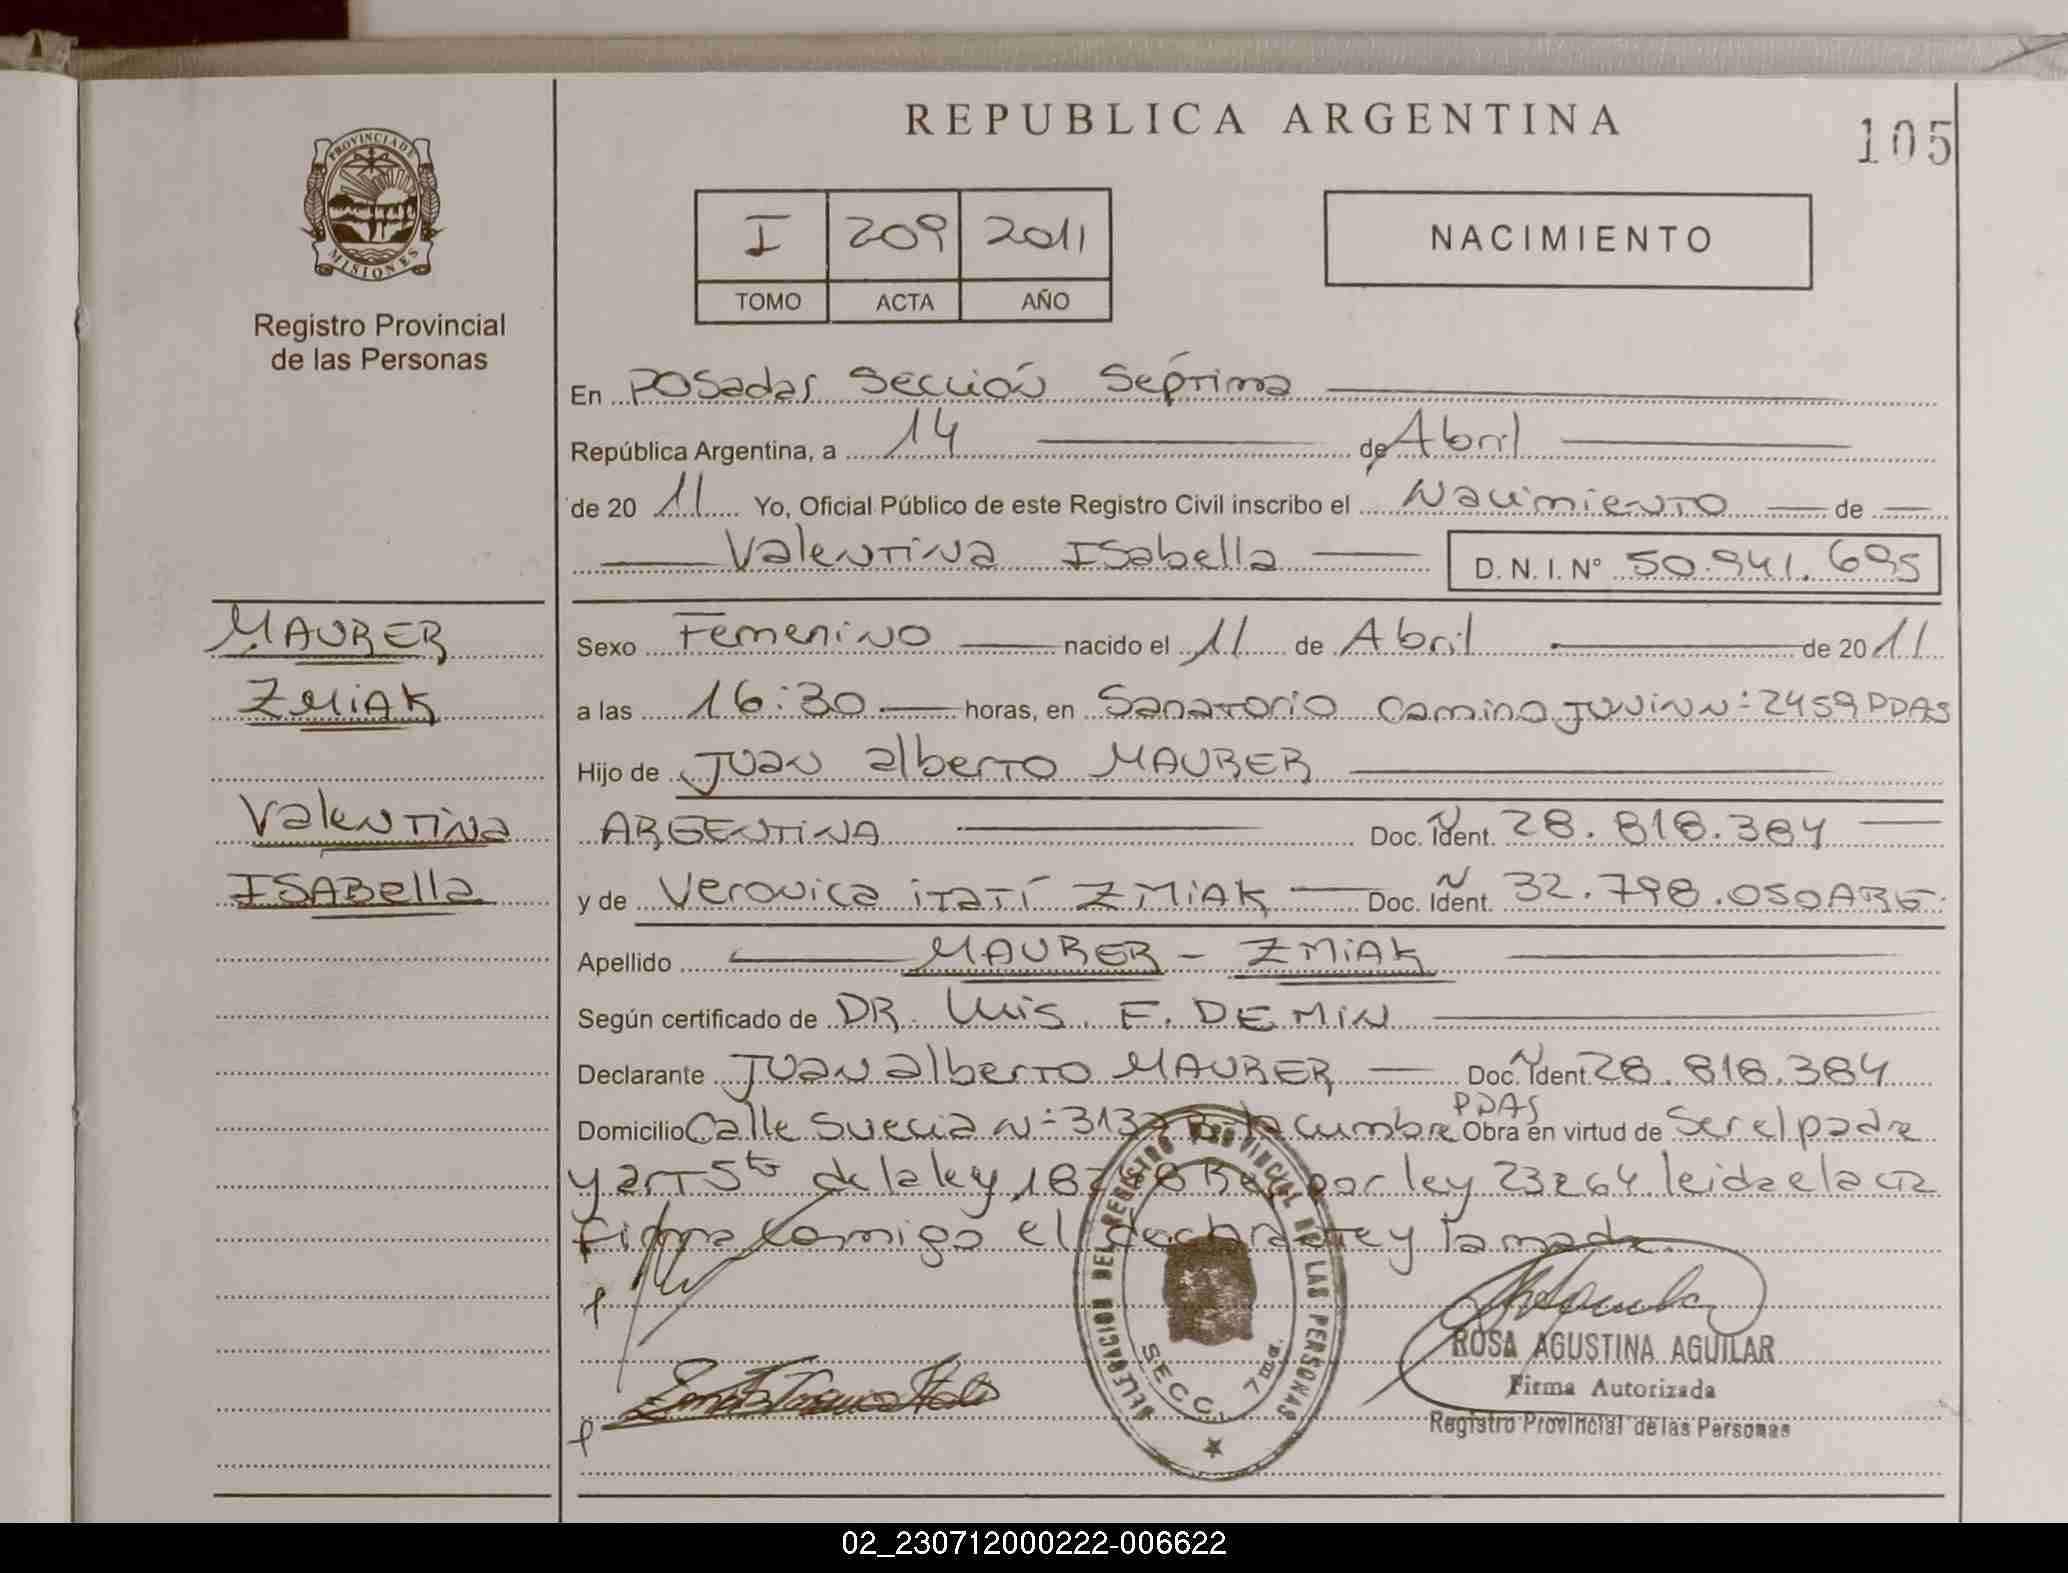 REPUBLICA ARGENTINA
105
PROVINCIA DE MISIONES
Registro Provincial
de las Personas
I 209 2011
TOMO ACTA AÑO
NACIMIENTO
En Posadas Sección Séptima
República Argentina, a 14 de Abril
de 20 11 Yo, Oficial Público de este Registro Civil inscribo el Nacimiento de
Valentina Isabella D. N. I. N° 50.941.695
MAURER
ZMiAK
Valentina
ISABella
Sexo Femenino nacido el 11 de Abril de 20 11
a las 16:30 horas, en Sanatorio Camino Junin N: 2459 PDAS
Hijo de Juan alberto MAURER
ARGENTINA Doc. Ident. N 28.818.384
y de Veronica itatí ZMiAK Doc. Ident. N 32.798.050 ARG.
Apellido MAURER - ZMiAK
Según certificado de DR. Luis F. DEMIN
Declarante Juan alberto MAURER Doc. Ident. N 28.818.384
Domicilio Calle Suecia N: 313 la Cumbre PDAS Obra en virtud de Ser el padre
y art 5to de la ley 18248 por ley 23264 leida el acta
firma Comigo el declarante y la madre.
DELEGACION DEL REGISTRO PROVINCIAL DE LAS PERSONAS
SECC. 7ma.
ROSA AGUSTINA AGUILAR
Firma Autorizada
Registro Provincial de las Personas
02_230712000222-006622